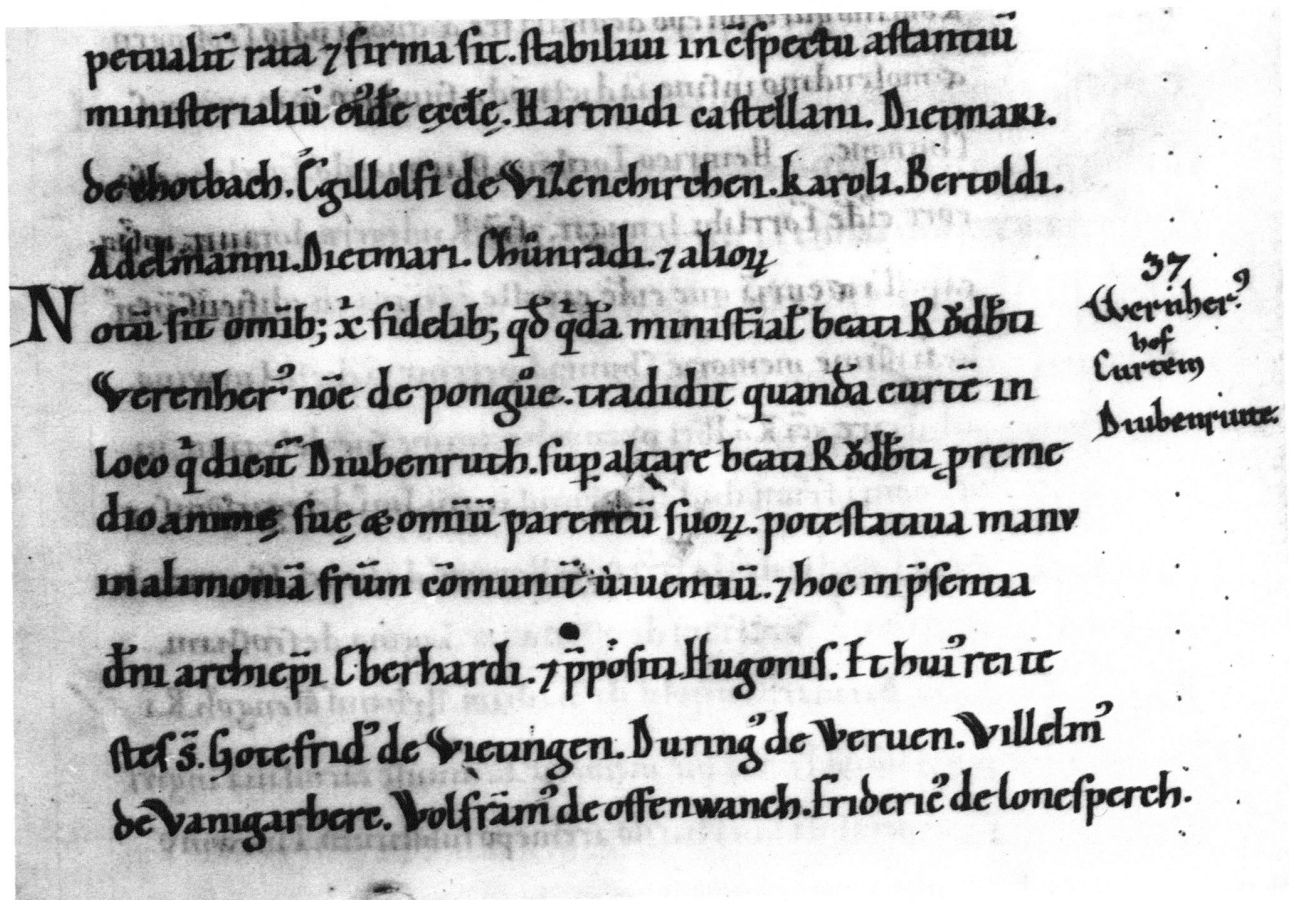 petualit̄ rata ⁊ firma sit. stabiliui in ꝯ̄spectu astantiū
ministerialiū eiꝰdē ęcclę. Hartnidi castellani. Dietmari.
de chotbach. Egillolfi de Vizenchirchen. karoli. Bertoldi.
Adelmanni. Dietmari. Chůnradi. ⁊ alioꝝ
Notū sit omīb; xp̄i fidelib; qđ qⁱdā minist̄ial̄ beati Rǒdb̄ti
Verenherꝰ nōe de pongůe. tradidit quandā curtē in
loco qⁱ dicit̄ Diubenruth. sup altare beati Rǒdb̄ti ꝓ reme
dio animę suę & omīū parentū suoꝝ. potestatiua manv
in alimoniā frūm cōmunit̄ uiuentiū. ⁊ hoc in p̄sentia
dn̄i archiep̄i Eberhardi. ⁊ p̄positi Hugonis. Et huiꝰ rei te
stes s̄. Gotefridꝰ de Vietingen. Duringꝰ de Veruen. Villelmꝰ
de Vanigarbere. Volfrāmꝰ de offenwanch. Fridericꝰ de lonesperch.
37
Wernherꝰ
hof
Curtem
Diubenriute.